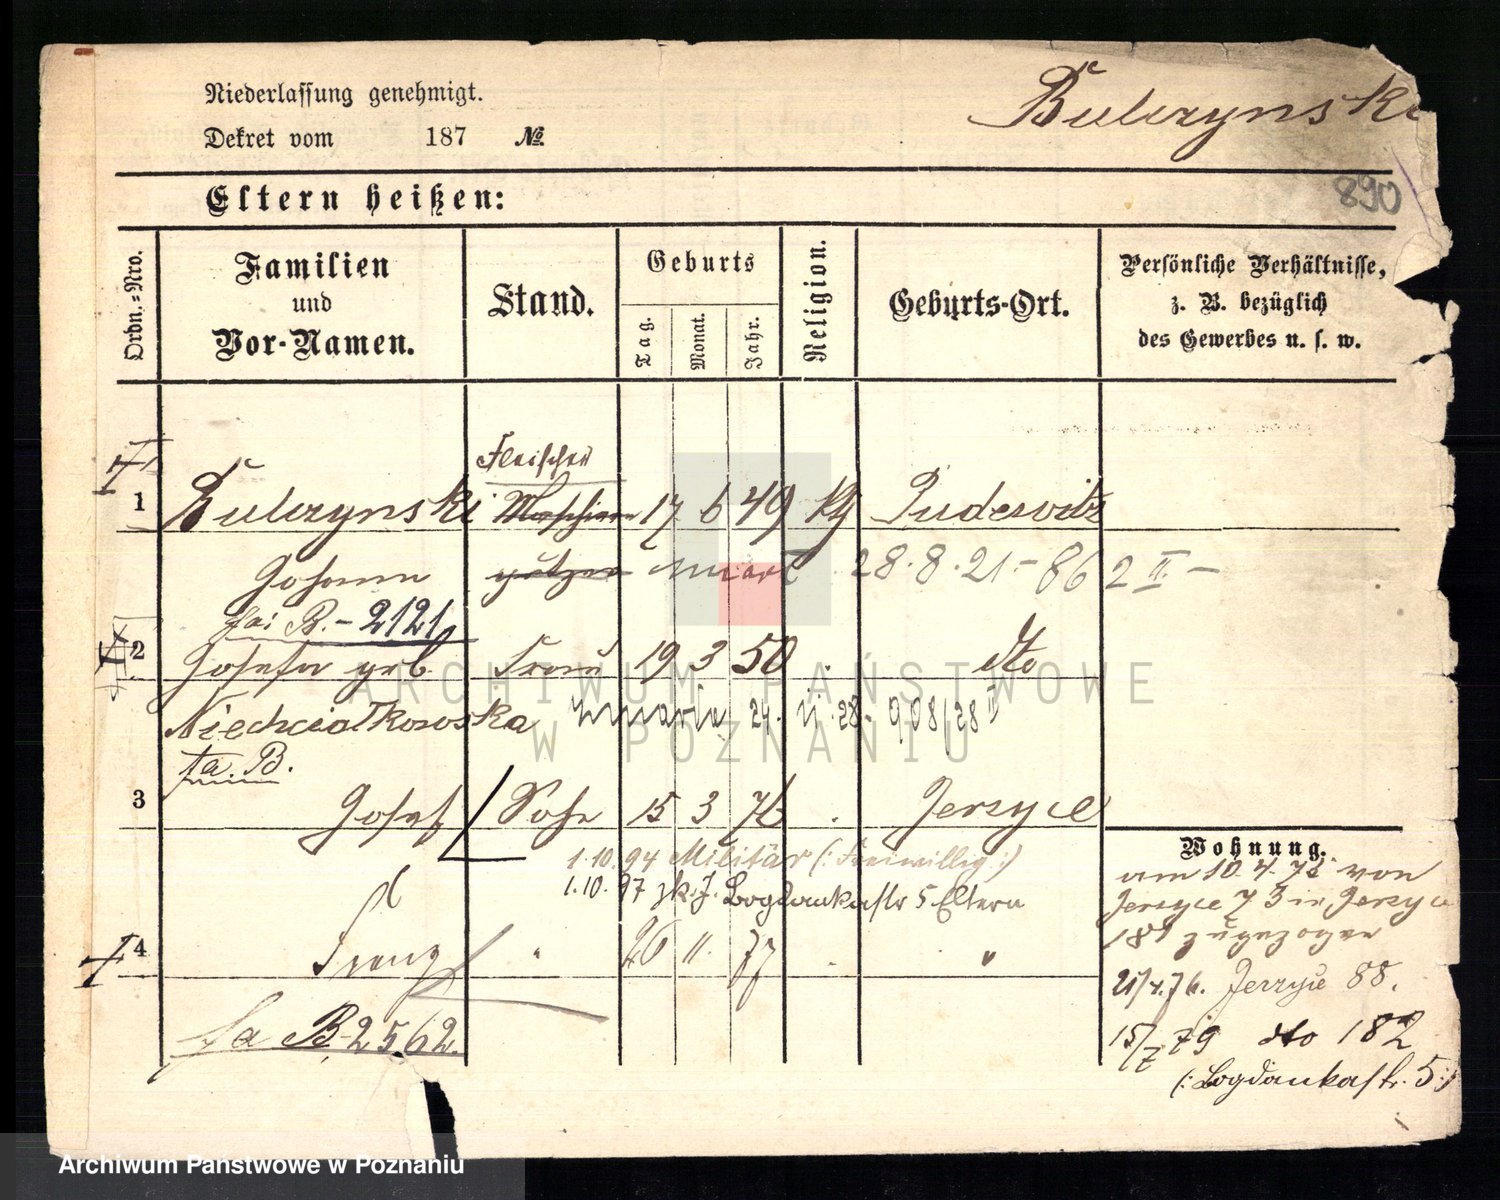 Niederlassung genehmigt.
Dekret vom 187 №
Bulczynski
890
Eltern heißen:
Ordn.-Nro.
Familien
und
Vor-Namen.
Stand.
Geburts
Tag.
Monat.
Jahr.
Religion.
Geburts-Ort.
Persönliche Verhältnisse,
z. B. bezüglich
des Gewerbes u. s. w.
Fleischer
1 Bulczynski Maschinen 17 6 49 Pudewitz
Johann putzer 28.8.21 - 862 II -
B. - 2121
2 Josefa geb. Frau 19 3 50 dto
Niechcialkowska zmarła 24. 28. 908/28 II
fa. B.
3 Josef Sohn 15 3 76 Jerzyce
1.10.94 Militär (: Freiwillig :)
1.10.97 zk. J. Bogdankastr 5 Eltern
4 Franz " 26 11. 77 "
fa B 2562.
Wohnung.
am 10.4. von
Jerzyce 73 in Jerzyce
181 zugezogen
21/4.76. Jerzyce 88.
15/7 79 dto 182
(: Bogdankastr. 5 :)
ARCHIWUM PAŃSTWOWE
W POZNANIU
Archiwum Państwowe w Poznaniu